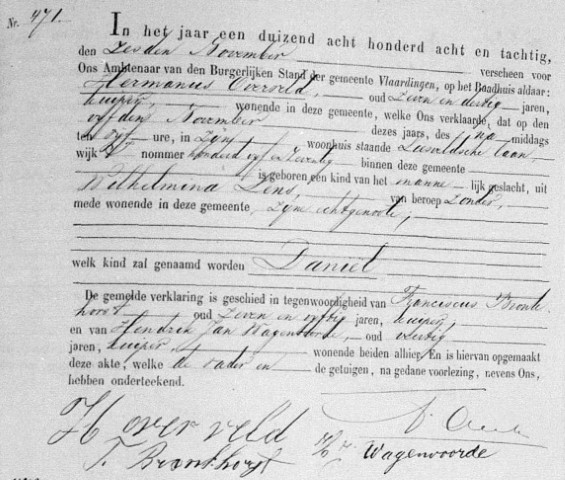 Nr. 471.
In het jaar een duizend acht honderd acht en tachtig,
den Zesden November verscheen voor
Ons Ambtenaar van den Burgerlijken Stand der gemeente Vlaardingen, op het Raadhuis aldaar:
Hermanus Overveld, oud Zeven en dertig jaren,
kuiper, wonende in deze gemeente, welke Ons verklaarde, dat op den
vyfden November dezes jaars, des na middags
ten vyf ure, in Zijn woonhuis staande
wijk nommer honderd vyf en binnen deze gemeente
is geboren een kind van het manne- lijk geslacht, uit
Wilhelmina Lens, van beroep Zonder,
mede wonende in deze gemeente, zijne echtgenoote;
welk kind zal genaamd worden Daniel
De gemelde verklaring is geschied in tegenwoordigheid van Franciscus Bronk
horst oud Zeven en vyftig jaren, kuiper,
en van Hendrik Jan Wagenvoorde, oud
jaren, kuiper wonende beiden alhier. En is hiervan opgemaakt
deze akte, welke de vader en de getuigen, na gedane voorlezing, nevens Ons,
hebben onderteekend.
H overveld
F. Bronkhorst Wagenvoorde